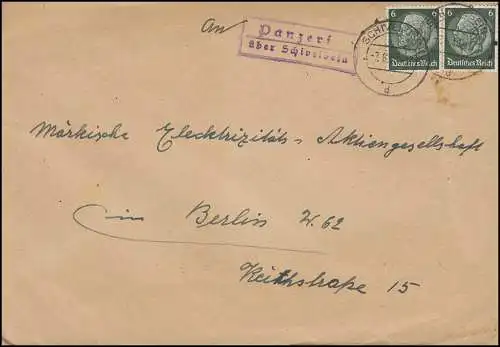 An
Panzerin
über Schivelbein
6 6
Deutsches Reich Deutsches Reich
Märkische Elecktrizitäts-Aktiengesellschaft
in Berlin W. 62
Keithstraße 15